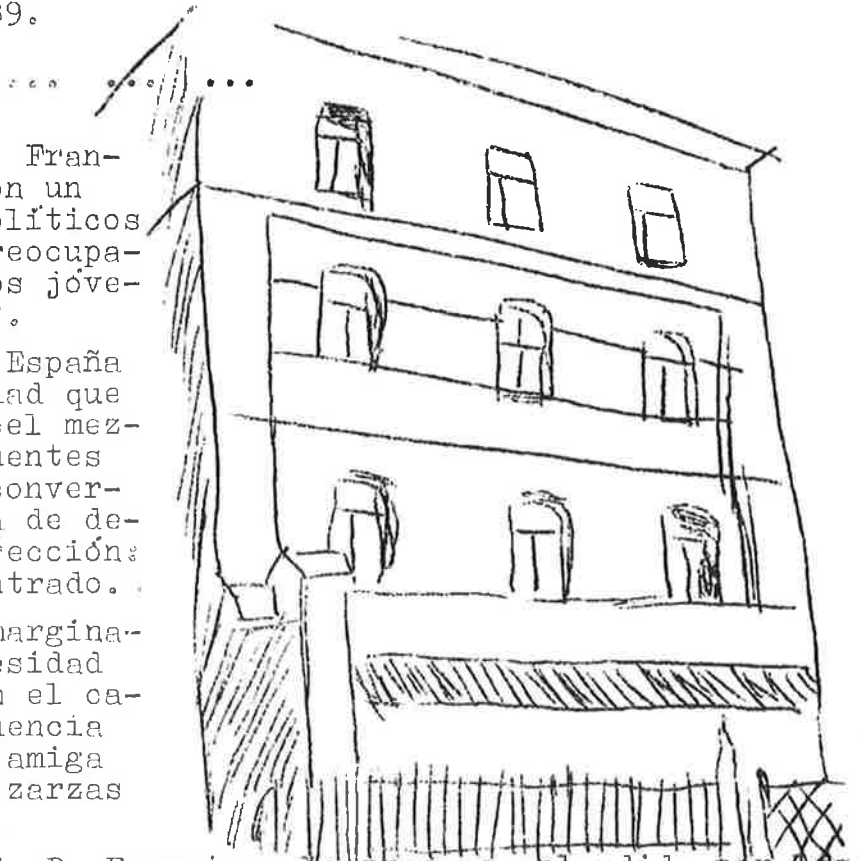 39.
... ... ...
Fran-
on un
olíticos
reocupa-
os jóve-
.
España
dad que
el mez-
uentes
conver-
a de de-
rección:
ntrado.
margina-
esidad
n el ca-
uencia
amiga
zarzas